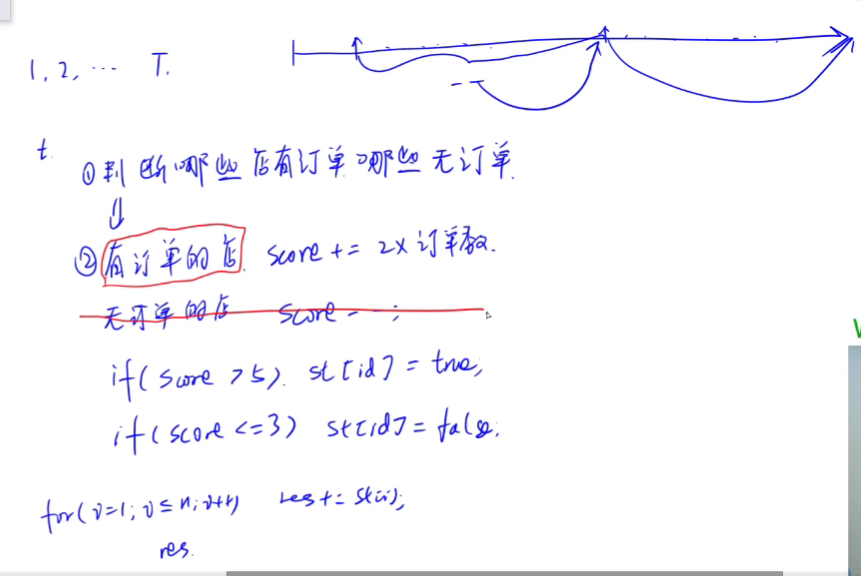 1, 2, ... T.
t.
①判断哪些店有订单 哪些无订单.
②有订单的店. score += 2× 订单数.
无订单的店 score--;
if( score >5). st[id] = true;
if(score <=3) st[id] = false;
for(i=1; i≤n; i++) res += st[i];
res.